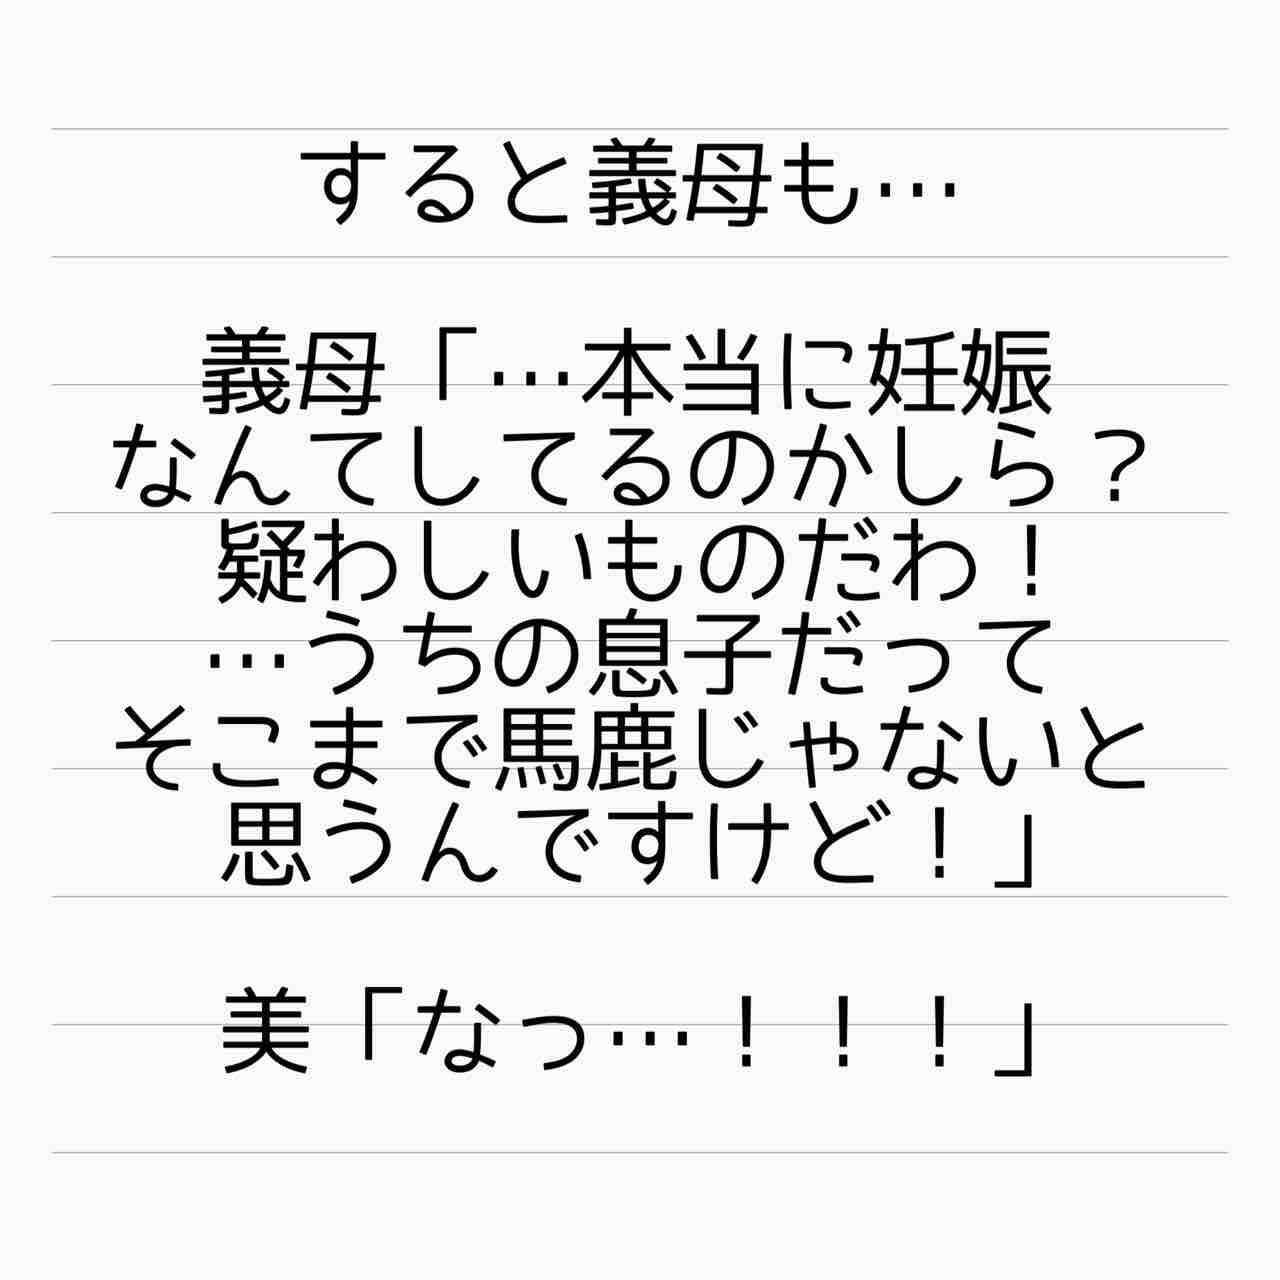 すると義母も…
義母「…本当に妊娠
なんてしてるのかしら？
疑わしいものだわ！
…うちの息子だって
そこまで馬鹿じゃないと
思うんですけど！」
美「なっ…！！！」